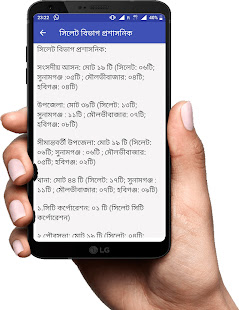 23:22
সিলেট বিভাগ প্রশাসনিক
সিলেট বিভাগ প্রশাসনিক:
সংসদীয় আসন: মোট ১৯ টি (সিলেট: ০৬টি;
সুনামগঞ্জ :০৫টি ; মৌলভীবাজার: ০৪টি;
হবিগঞ্জ: ০৪টি)
উপজেলা: মোট ৩৯টি (সিলেট: ১৩টি;
সুনামগঞ্জ : ১১টি ; মৌলভীবাজার: ০৭টি;
হবিগঞ্জ: ০৮টি)
সীমান্তবর্তী উপজেলা: মোট ১৯ টি (সিলেট:
০৬টি ; মৌলভীবাজার:
থানা: মোট ৪৪ টি (সিলেট: ১৭টি; সুনামগঞ্জ :
১১টি ; মৌলভীবাজার: ০৭টি; হবিগঞ্জ: ০৯টি)
১.সিটি কর্পোরেশন: ০১ টি (সিলেট সিটি
কর্পোরেশন)
LG